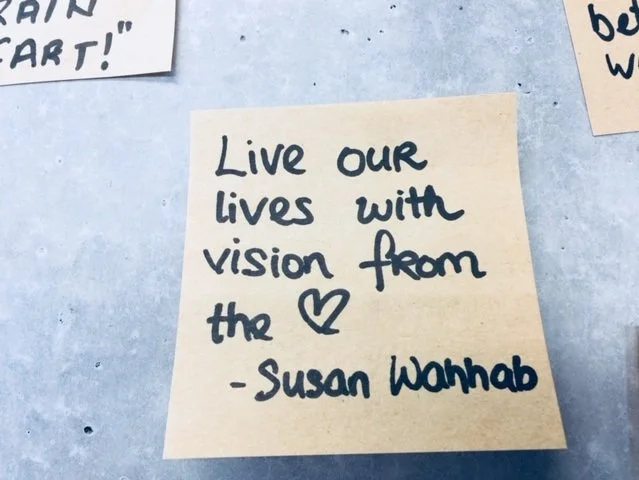 RAIN
ART!"
be
w
Live our
lives with
vision from
the ♡
- Susan Wahhab